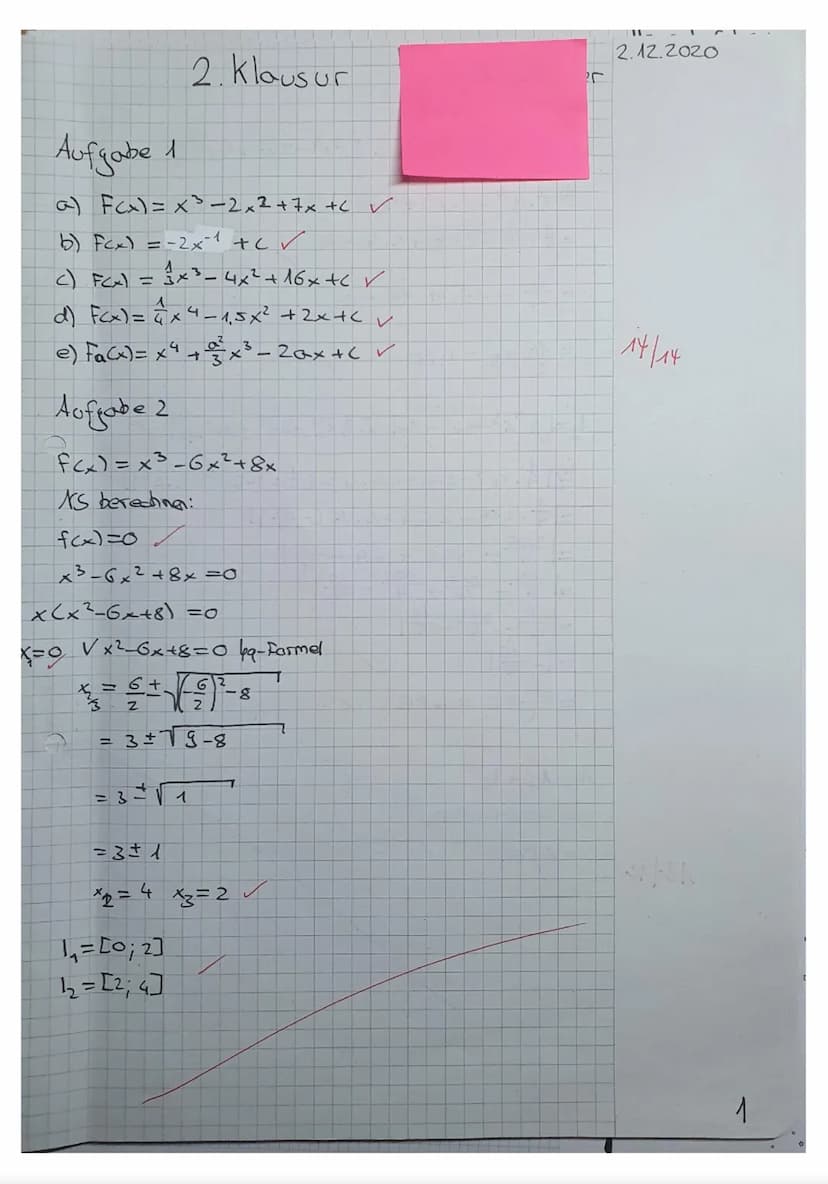 2. Klausur
2.12.2020
Aufgabe 1
a) F(x) = x³ - 2x² + 7x + c ✓
b) F(x) = -2x⁻¹ + c ✓
c) F(x) = 1/3 x³ - 4x² + 16x + c ✓
d) F(x) = 1/4 x⁴ - 1,5x² + 2x + c ✓
e) Fa(x) = x⁴ + a²/3 x³ - 2ax + c ✓
14/14
Aufgabe 2
f(x) = x³ - 6x² + 8x
NS berechnen:
f(x) = 0 ✓
x³ - 6x² + 8x = 0
x(x² - 6x + 8) = 0
x₁ = 0 ✓ V x² - 6x + 8 = 0 pq-Formel
x₂/₃ = 6/2 ± √((-6/2)² - 8)
= 3 ± √(9 - 8)
= 3 ± √1
= 3 ± 1
x₂ = 4 x₃ = 2 ✓
I₁ = [0; 2]
I₂ = [2; 4]
1